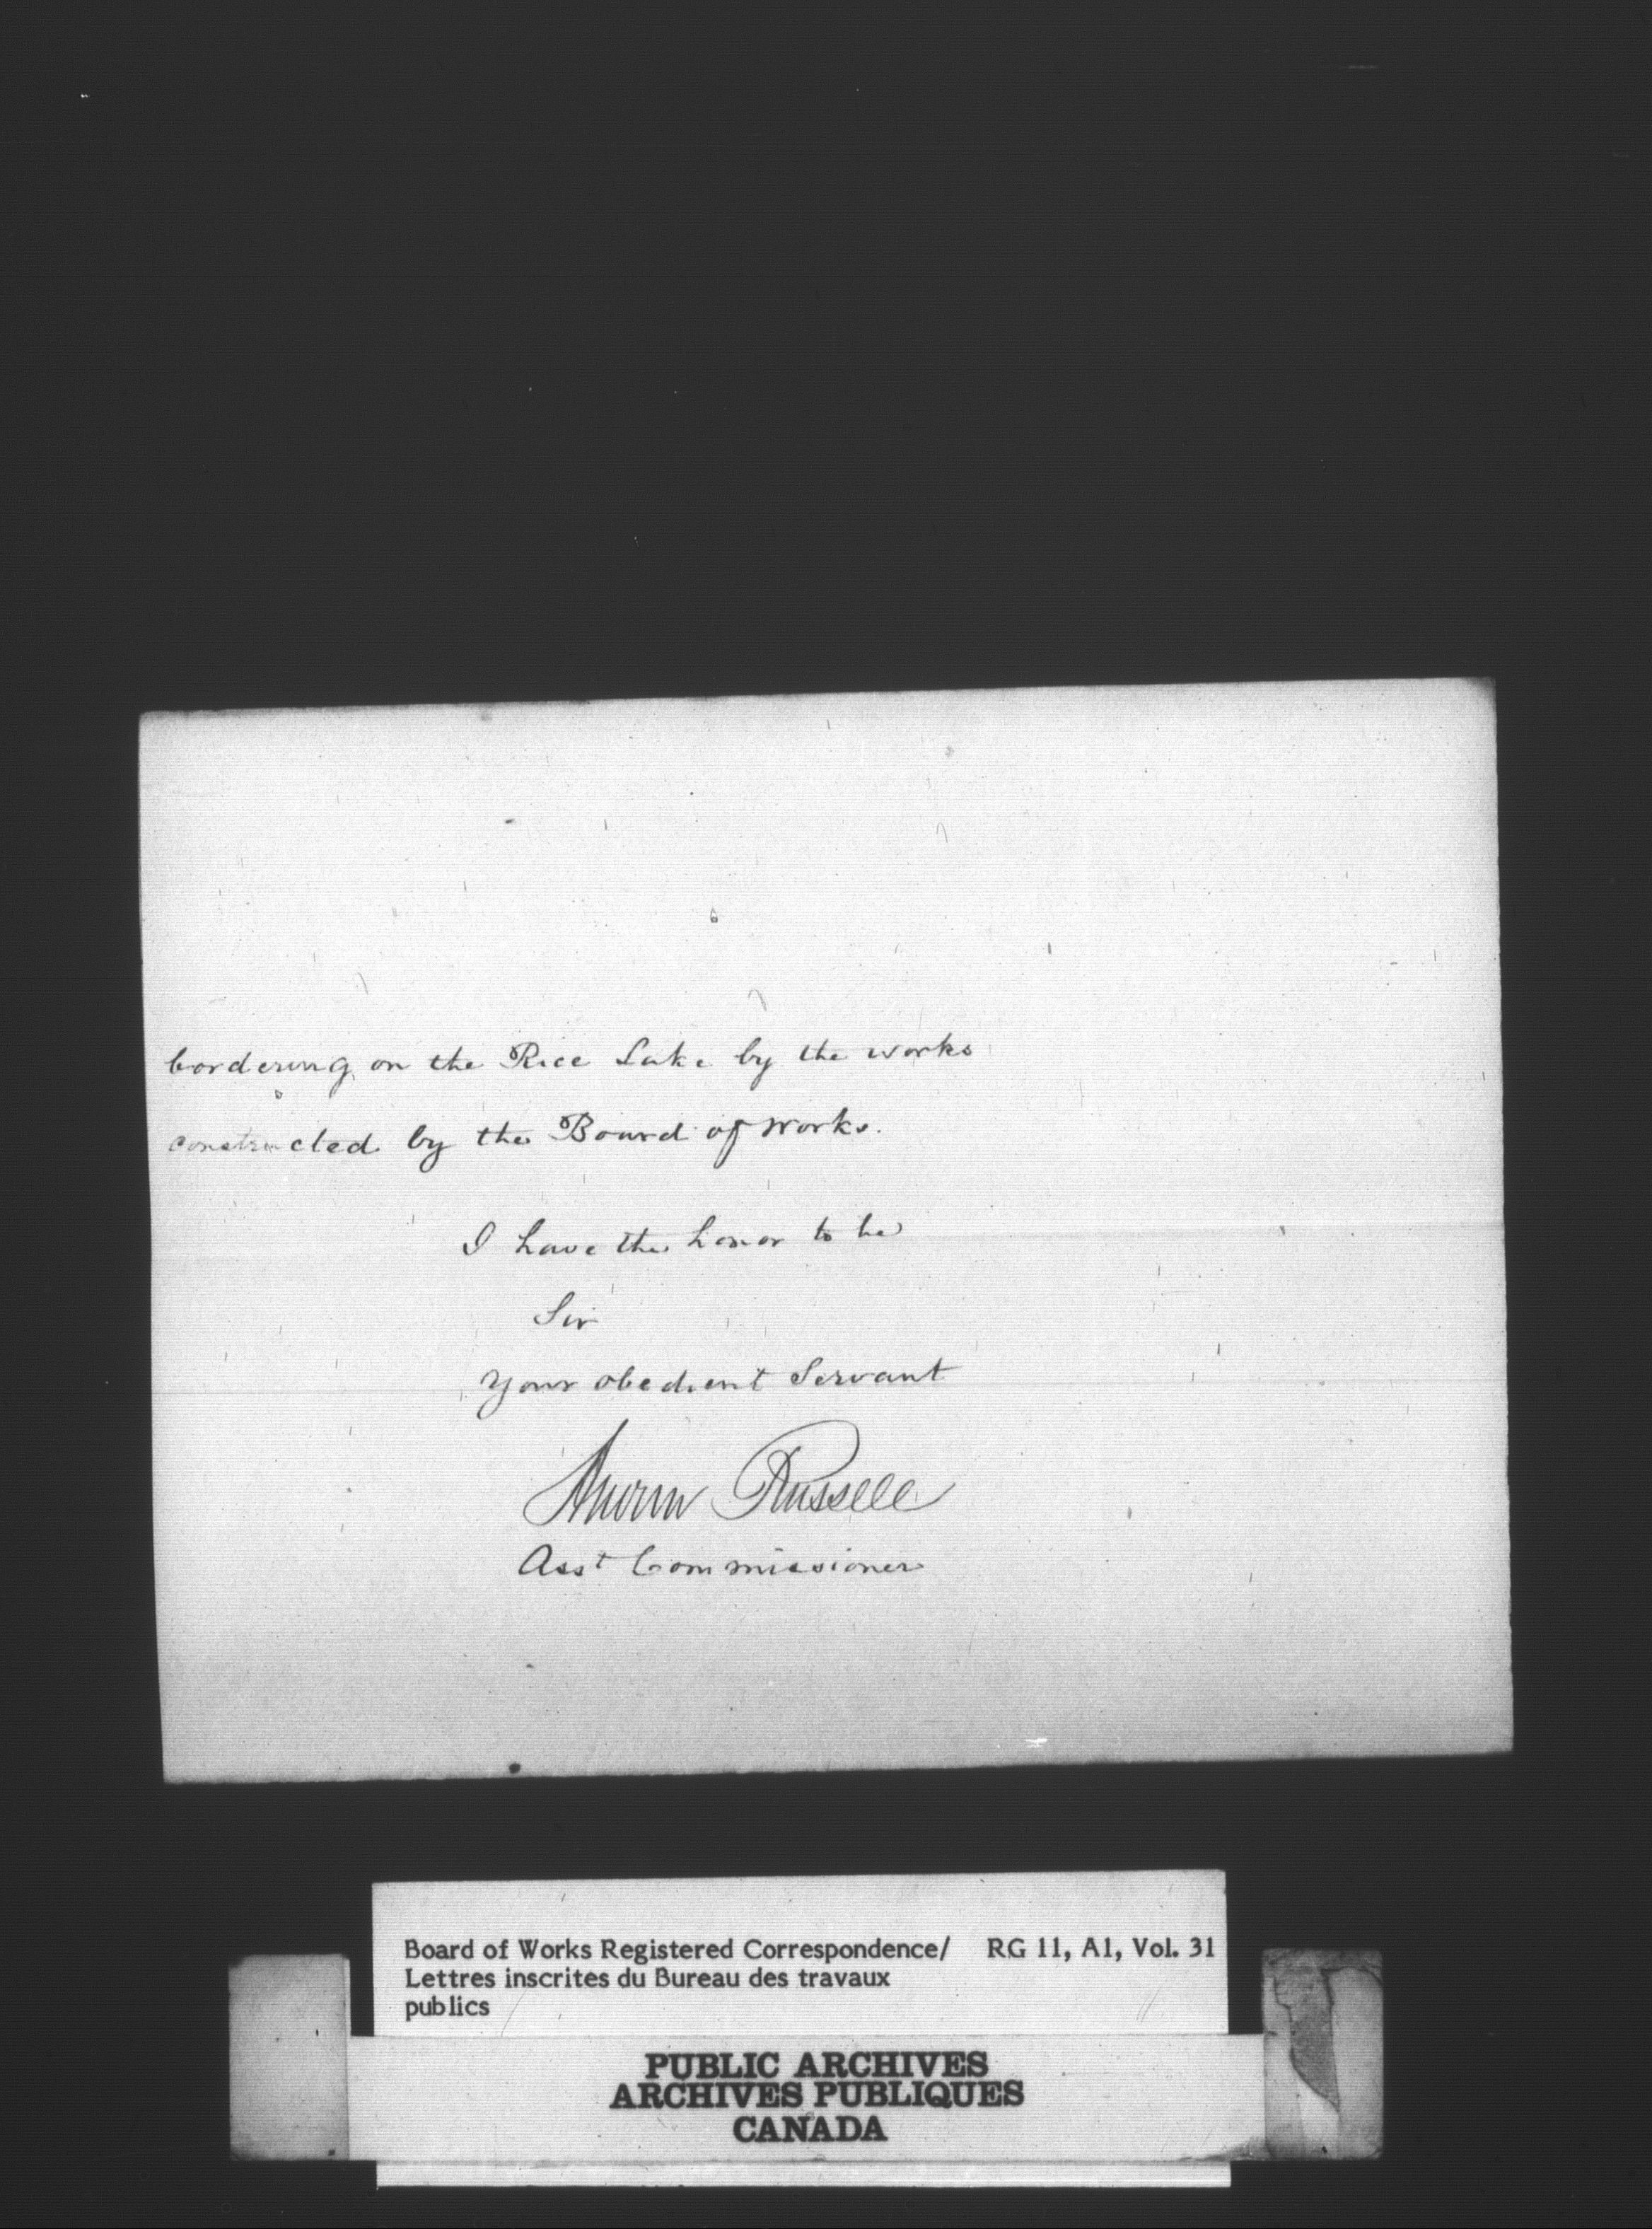 bordering on the Rice Lake by the works
constructed by the Board of Works.
I have the honor to be
Sir
Your obedient Servant
Russell
Asst Commissioner
Board of Works Registered Correspondence/ RG 11, A1, Vol. 31
Lettres inscrites du Bureau des travaux
publics
PUBLIC ARCHIVES
ARCHIVES PUBLIQUES
CANADA